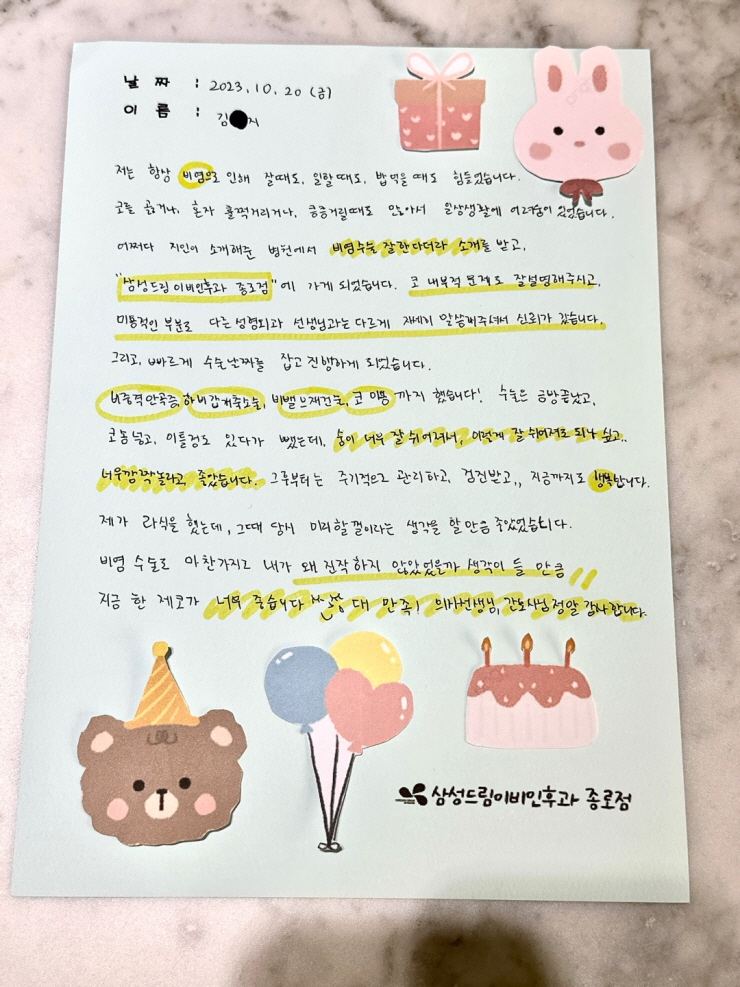 날 짜 : 2023. 10. 20 (금)
이 름 : 김 지
저는 항상 비염으로 인해 잘때도, 일할때도, 밥먹을때도 힘들었습니다.
코를 골거나, 혼자 훌쩍거리거나, 킁킁거릴때도 많아서 일상생활에 어려움이 있었습니다.
어쩌다 지인이 소개해준 병원에서 비염수술 잘한다더라 소개를 받고,
"삼성드림이비인후과 종로점"에 가게 되었습니다. 코 내부적 문제도 잘설명해주시고,
미용적인 부분도 다른 성형외과 선생님과는 다르게 자세히 말씀해주셔서 신뢰가 갔습니다.
그리고, 빠르게 수술날짜를 잡고 진행하게 되었습니다.
비중격만곡증, 하비갑개축소술, 비밸브재건술, 코 미용까지 했습니다! 수술은 금방끝났고,
코퉁넣고, 이틀정도 있다가 뺐는데, 숨이 너무 잘 쉬어져서, 이렇게 잘 쉬어져도 되나 싶고..
너무깜짝놀라고, 좋았습니다. 그후부터는 주기적으로 관리하고, 검진받고,, 지금까지도 행복합니다.
제가 라식을 했는데, 그때 당시 미리할껄이라는 생각을 할만큼 좋았었습니다.
비염 수술도 마찬가지로 내가 왜 진작하지 않았었을까 생각이 들 만큼
지금 한 제코가 너무 좋습니다 대 만족! 의사선생님, 간호사님 정말 감사합니다.
삼성드림이비인후과 종로점